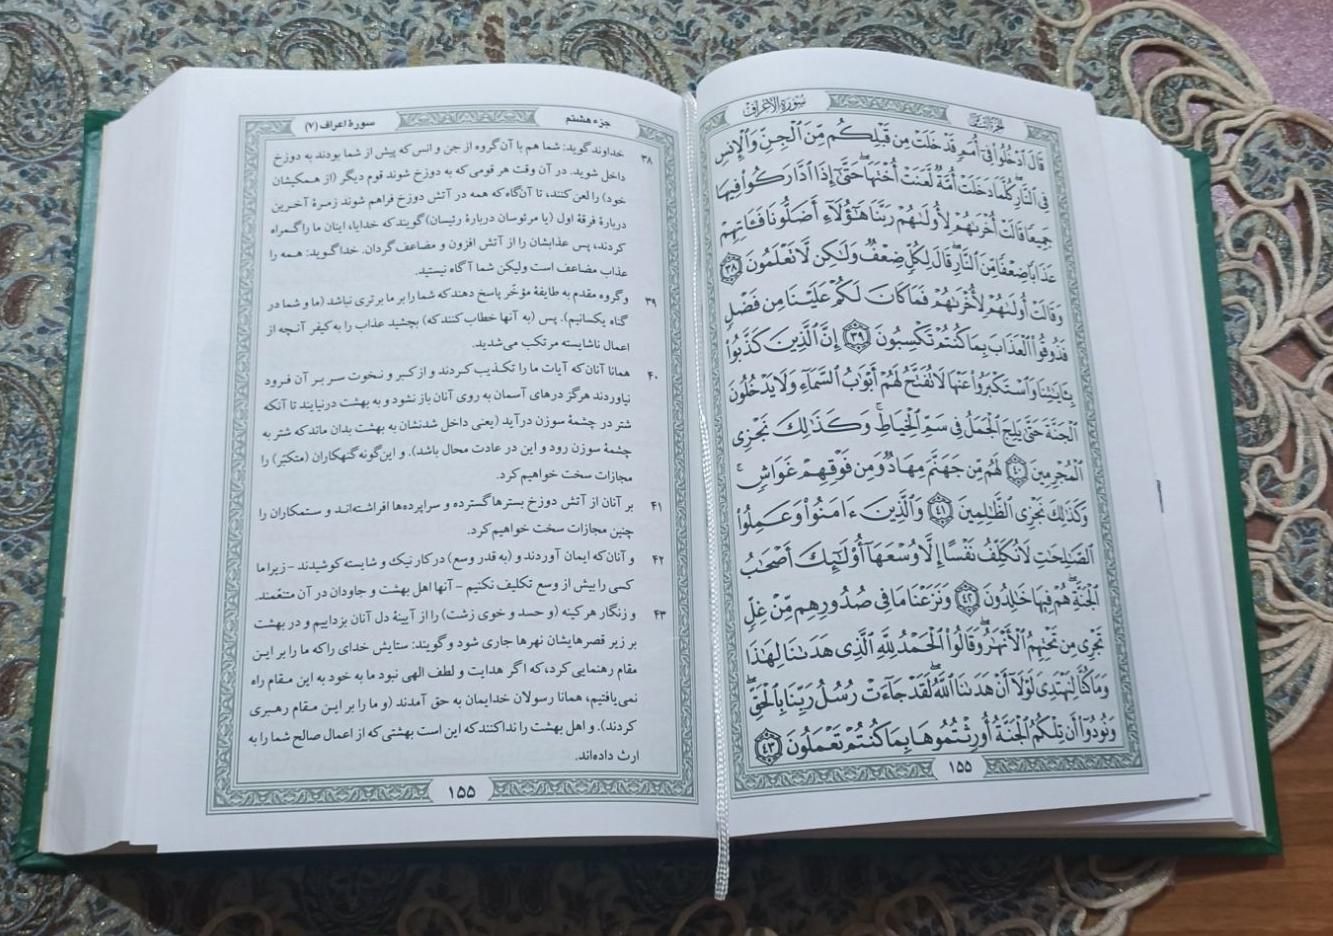 سُورَةُ الأَعْرَافِ
قَالَ ٱدْخُلُوا۟ فِىٓ أُمَمٍ قَدْ خَلَتْ مِن قَبْلِكُم مِّنَ ٱلْجِنِّ وَٱلْإِنسِ
فِى ٱلنَّارِ ۖ كُلَّمَا دَخَلَتْ أُمَّةٌ لَّعَنَتْ أُخْتَهَا ۖ حَتَّىٰٓ إِذَا ٱدَّارَكُوا۟ فِيهَا
جَمِيعًا قَالَتْ أُخْرَىٰهُمْ لِأُولَىٰهُمْ رَبَّنَا هَٰٓؤُلَآءِ أَضَلُّونَا فَـَٔاتِهِمْ
عَذَابًا ضِعْفًا مِّنَ ٱلنَّارِ ۖ قَالَ لِكُلٍّ ضِعْفٌ وَلَٰكِن لَّا تَعْلَمُونَ ۳۸
وَقَالَتْ أُولَىٰهُمْ لِأُخْرَىٰهُمْ فَمَا كَانَ لَكُمْ عَلَيْنَا مِن فَضْلٍ
فَذُوقُوا۟ ٱلْعَذَابَ بِمَا كُنتُمْ تَكْسِبُونَ ۳۹ إِنَّ ٱلَّذِينَ كَذَّبُوا۟
بِـَٔايَٰتِنَا وَٱسْتَكْبَرُوا۟ عَنْهَا لَا تُفَتَّحُ لَهُمْ أَبْوَٰبُ ٱلسَّمَآءِ وَلَا يَدْخُلُونَ
ٱلْجَنَّةَ حَتَّىٰ يَلِجَ ٱلْجَمَلُ فِى سَمِّ ٱلْخِيَاطِ ۚ وَكَذَٰلِكَ نَجْزِى
ٱلْمُجْرِمِينَ ۴۰ لَهُم مِّن جَهَنَّمَ مِهَادٌ وَمِن فَوْقِهِمْ غَوَاشٍ ۚ
وَكَذَٰلِكَ نَجْزِى ٱلظَّٰلِمِينَ ۴۱ وَٱلَّذِينَ ءَامَنُوا۟ وَعَمِلُوا۟
ٱلصَّٰلِحَٰتِ لَا نُكَلِّفُ نَفْسًا إِلَّا وُسْعَهَآ أُو۟لَٰٓئِكَ أَصْحَٰبُ
ٱلْجَنَّةِ ۖ هُمْ فِيهَا خَٰلِدُونَ ۴۲ وَنَزَعْنَا مَا فِى صُدُورِهِم مِّنْ غِلٍّ
تَجْرِى مِن تَحْتِهِمُ ٱلْأَنْهَٰرُ ۖ وَقَالُوا۟ ٱلْحَمْدُ لِلَّهِ ٱلَّذِى هَدَىٰنَا لِهَٰذَا
وَمَا كُنَّا لِنَهْتَدِىَ لَوْلَآ أَنْ هَدَىٰنَا ٱللَّهُ ۖ لَقَدْ جَآءَتْ رُسُلُ رَبِّنَا بِٱلْحَقِّ ۖ
وَنُودُوٓا۟ أَن تِلْكُمُ ٱلْجَنَّةُ أُورِثْتُمُوهَا بِمَا كُنتُمْ تَعْمَلُونَ ۴۳
۱۵۵
جزء هشتم
سورهٔ اعراف (۷)
۳۸ خداوند گوید: شما هم با آن گروه از جن و انس که پیش از شما بودند به دوزخ
داخل شوید. در آن وقت هر قومی که به دوزخ شوند قوم دیگر (از همکیشان
خود) را لعن کنند، تا آن‌گاه که همه در آتش دوزخ فراهم شوند زمرهٔ آخرین
دربارهٔ فرقهٔ اول (یا مرئوسان دربارهٔ رئیسان) گویند که خدایا، اینان ما را گمراه
کردند، پس عذابشان را از آتش افزون و مضاعف گردان. خدا گوید: همه را
عذاب مضاعف است ولیکن شما آگاه نیستید.
۳۹ و گروه مقدم به طایفهٔ مؤخّر پاسخ دهند که شما را بر ما برتری نباشد (ما و شما در
گناه یکسانیم). پس (به آنها خطاب کنند که) بچشید عذاب را به کیفر آنچه از
اعمال ناشایسته مرتکب می‌شدید.
۴۰ همانا آنان که آیات ما را تکذیب کردند و از کبر و نخوت سر بر آن فرود
نیاوردند هرگز درهای آسمان به روی آنان باز نشود و به بهشت درنیایند تا آنکه
شتر در چشمهٔ سوزن درآید (یعنی داخل شدنشان به بهشت بدان ماند که شتر به
چشمهٔ سوزن رود و این در عادت محال باشد). و این‌گونه گنهکاران (متکبّر) را
مجازات سخت خواهیم کرد.
۴۱ بر آنان از آتش دوزخ بسترها گسترده و سراپرده‌ها افراشته‌اند و ستمکاران را
چنین مجازات سخت خواهیم کرد.
۴۲ و آنان که ایمان آوردند و (به قدر وسع) در کار نیک و شایسته کوشیدند – زیرا ما
کسی را بیش از وسع تکلیف نکنیم – آنها اهل بهشت و جاودان در آن متنعّمند.
۴۳ و زنگار هر کینه (و حسد و خوی زشت) را از آیینهٔ دل آنان بزداییم و در بهشت
بر زیر قصرهایشان نهرها جاری شود و گویند: ستایش خدای را که ما را بر این
مقام رهنمایی کرد، که اگر هدایت و لطف الهی نبود ما به خود به این مقام راه
نمی‌یافتیم، همانا رسولان خدایمان به حق آمدند (و ما را بر این مقام رهبری
کردند). و اهل بهشت را ندا کنند که این است بهشتی که از اعمال صالح شما را به
ارث داده‌اند.
۱۵۵